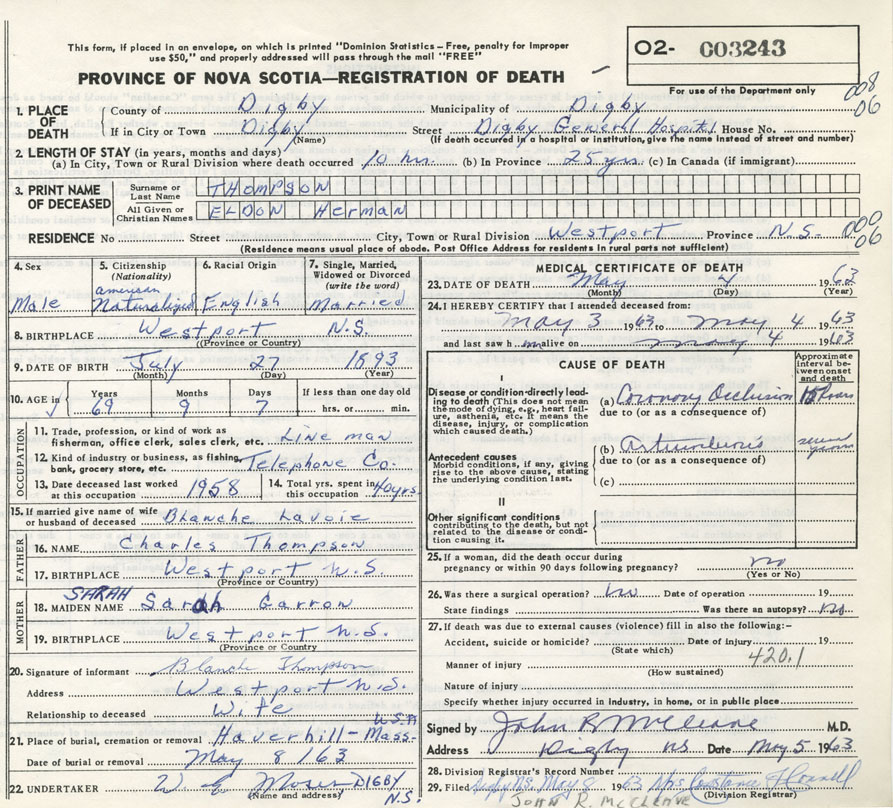 This form, if placed in an envelope, on which is printed "Dominion Statistics - Free, penalty for improper
use $50," and properly addressed will pass through the mail "FREE"
PROVINCE OF NOVA SCOTIA—REGISTRATION OF DEATH
02- 003243
For use of the Department only
008
06
1. PLACE OF DEATH
County of Digby Municipality of Digby
If in City or Town Digby Street Digby General Hospital House No.
(Name) (If death occurred in a hospital or institution, give the name instead of street and number)
2. LENGTH OF STAY (in years, months and days)
(a) In City, Town or Rural Division where death occurred 10 hrs. (b) In Province 25 yrs. (c) In Canada (if immigrant)
3. PRINT NAME OF DECEASED
Surname or Last Name THOMPSON
All Given or Christian Names ELDON Herman
RESIDENCE No Street City, Town or Rural Division Westport Province N.S.
000
06
(Residence means usual place of abode. Post Office Address for residents in rural parts not sufficient)
4. Sex Male
5. Citizenship (Nationality) american Naturalized
6. Racial Origin English
7. Single, Married, Widowed or Divorced (write the word) Married
8. BIRTHPLACE Westport N.S.
(Province or Country)
9. DATE OF BIRTH July 27 1893
(Month) (Day) (Year)
10. AGE in Years 69 Months 9 Days 7 If less than one day old hrs. or min.
OCCUPATION
11. Trade, profession, or kind of work as
fisherman, office clerk, sales clerk, etc. Line man
12. Kind of industry or business, as fishing,
bank, grocery store, etc. Telephone Co.
13. Date deceased last worked at this occupation 1958
14. Total yrs. spent in this occupation 40 yrs.
15. If married give name of wife
or husband of deceased Blanche Lavoie
FATHER
16. NAME Charles Thompson
17. BIRTHPLACE Westport N.S.
(Province or Country)
MOTHER
SARAH
18. MAIDEN NAME Sarah Garron
19. BIRTHPLACE Westport N.S.
(Province or Country
20. Signature of informant Blanche Thompson
Address Westport N.S.
Relationship to deceased Wife
U.S.A
21. Place of burial, cremation or removal Haverhill - Mass.
Date of burial or removal May 8/63
22. UNDERTAKER W. Moses DIGBY
(Name and address) N.S.
MEDICAL CERTIFICATE OF DEATH
23. DATE OF DEATH May 4 1963
(Month) (Day) (Year)
24. I HEREBY CERTIFY that I attended deceased from:
May 3 1963 to May 4 1963
and last saw him alive on May 4 1963
CAUSE OF DEATH
Approximate interval between onset and death
I
Disease or condition directly leading to death (This does not mean
the mode of dying, e.g., heart failure, asthenia, etc. It means the
disease, injury, or complication which caused death.)
(a) Coronary Occlusion hours
due to (or as a consequence of)
Antecedent causes
Morbid conditions, if any, giving
rise to the above cause, stating
the underlying condition last.
(b) several years
due to (or as a consequence of)
(c)
II
Other significant conditions
contributing to the death, but not
related to the disease or condition causing it.
25. If a woman, did the death occur during
pregnancy or within 90 days following pregnancy? no
(Yes or No)
26. Was there a surgical operation? no Date of operation 19
State findings Was there an autopsy? no
27. If death was due to external causes (violence) fill in also the following:-
Accident, suicide or homicide? Date of injury 19
(State which)
Manner of injury 420.1
(How sustained)
Nature of injury
Specify whether injury occurred in industry, in home, or in public place
Signed by John R McCleave M.D.
Address Digby NS Date May 5 1963
28. Division Registrar's Record Number
29. Filed Digby NS. May 8 1963 Mrs
(Division Registrar)
JOHN R. McCLEAVE